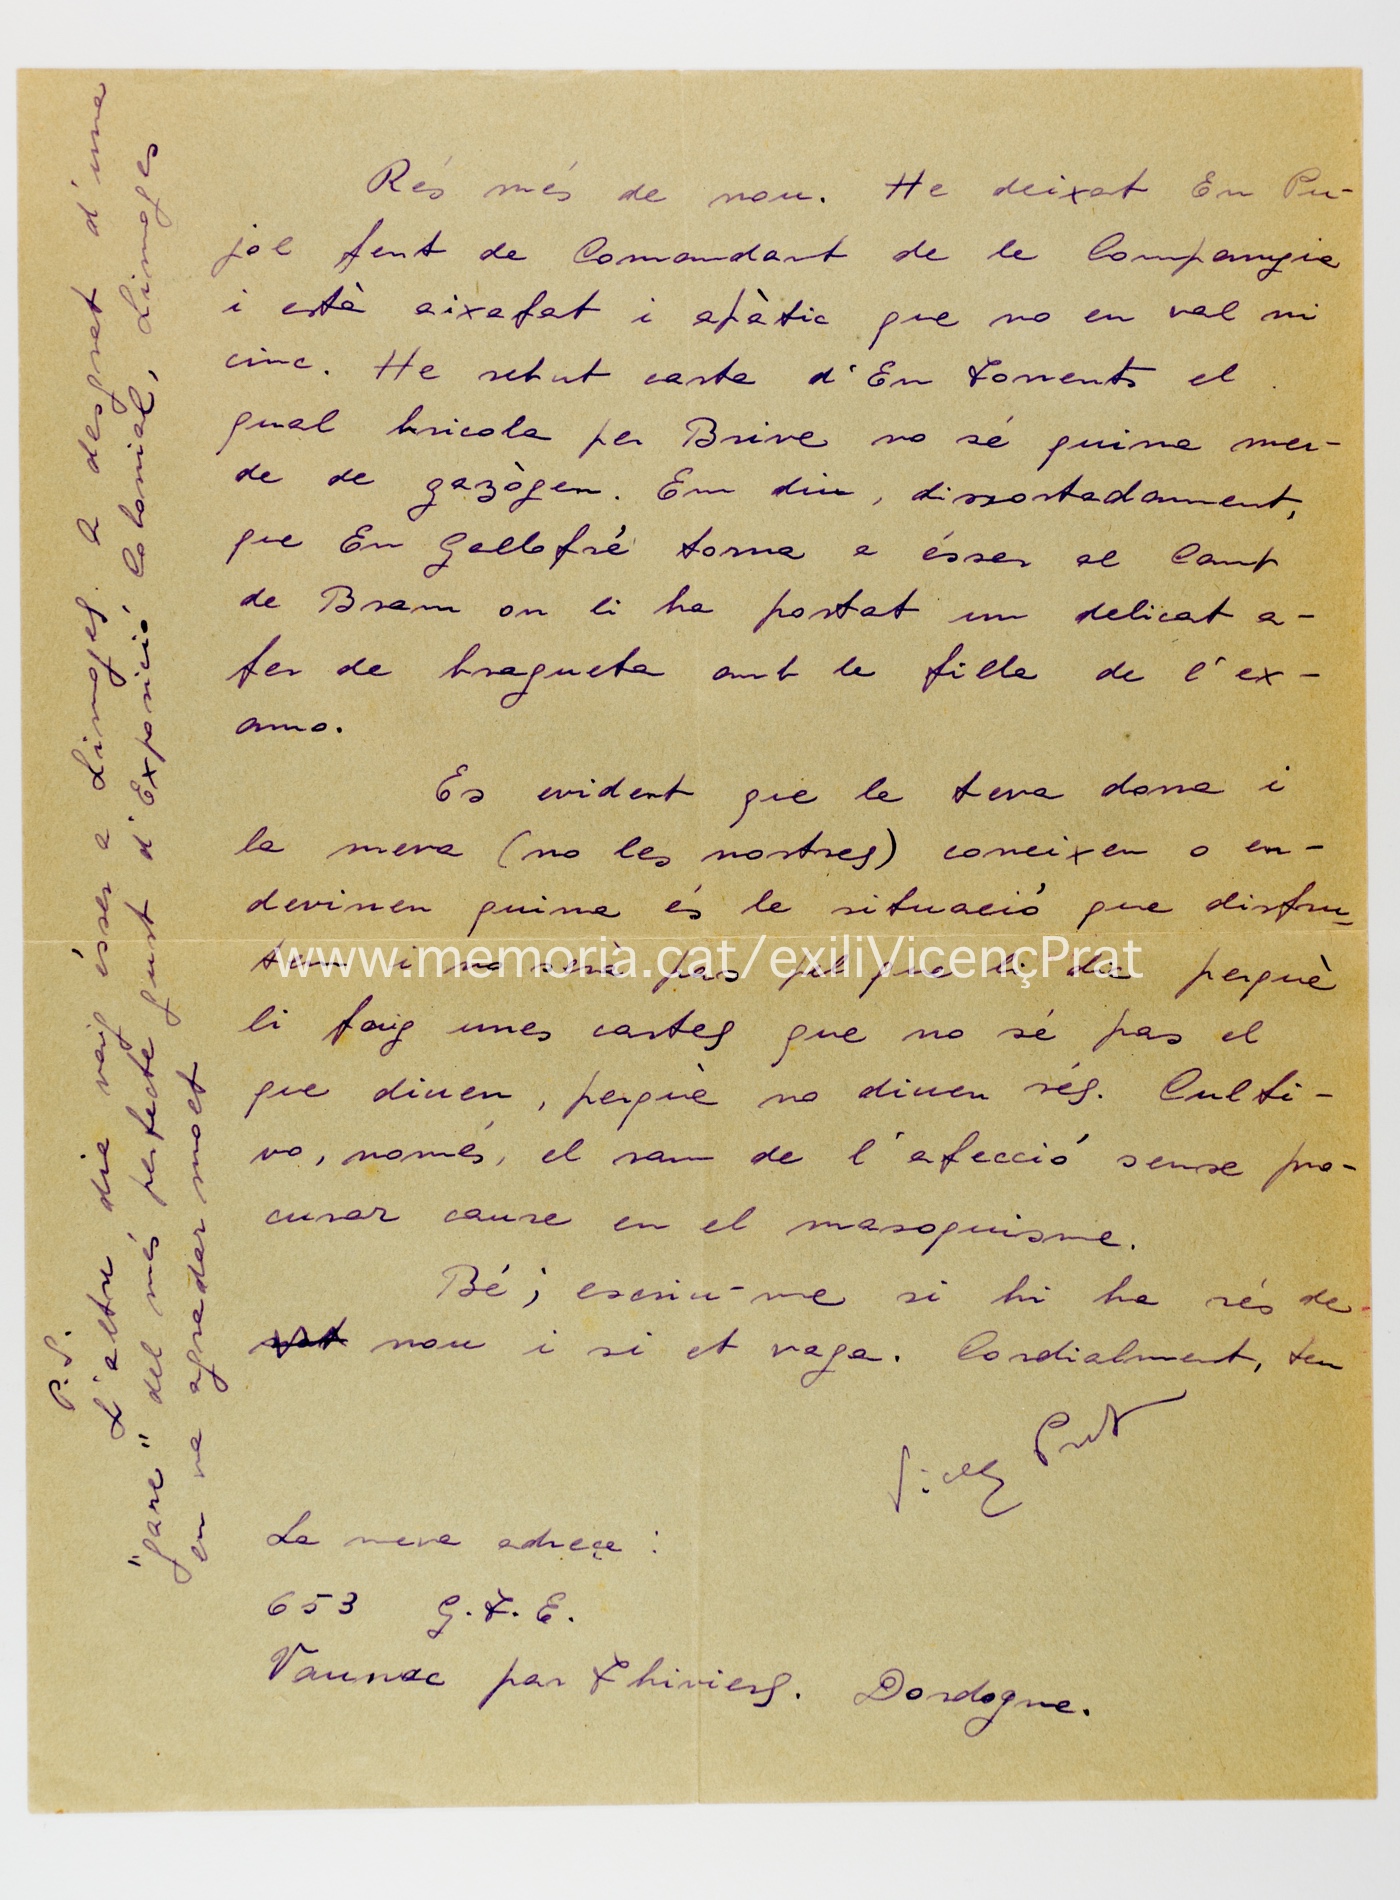 Rés més de nou. He deixat En Pu-
jol fent de Comandant de la Companyia
i està aixafat i apàtic que no en val ni
cinc. He rebut carta d'En Torrents el
qual bricola per Brive no sé quina mer-
de de gazògen. Em diu, dissortadament,
que En Gallofré torna a ésser al Camp
de Bram on li ha portat un delicat a-
fer de bragueta amb la filla de l'ex-
amo.
Es evident que la teva dona i
la meva (no les nostres) coneixen o en-
devinen quina és la situació que disfru-
tem i no serà pas pel que li dic perquè
li faig unes cartes que no sé pas el
que diuen, perquè no diuen rés. Culti-
vo, només, el ram de l'afecció sense pro-
curar caure en el masoquisme.
Bé; escriu-me si hi ha rés de
nou i si et vaga. Cordialment, teu
Prat
La meva adreça:
653 G.T.E.
Vaunac par Thiviers. Dordogne.
P.S.
L'altre dia vaig ésser a Limoges. A desgrat d'una
"gare" del més perfecte gust d'Exposició Colonial, Limoges
em va agradar molt
www.memoria.cat/exiliVicençPrat